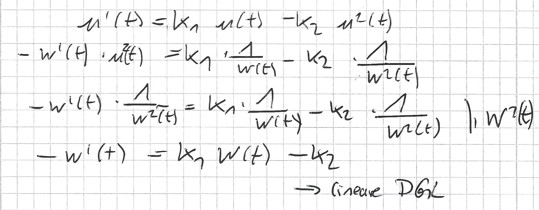 u'(t) = k₁ u(t) - k₂ u²(t)
- w'(t) · u²(t) = k₁ · 1/w(t) - k₂ · 1/w²(t)
- w'(t) · 1/w²(t) = k₁ · 1/w(t) - k₂ · 1/w²(t) |· w²(t)
- w'(t) = k₁ w(t) - k₂
→ lineare DGL